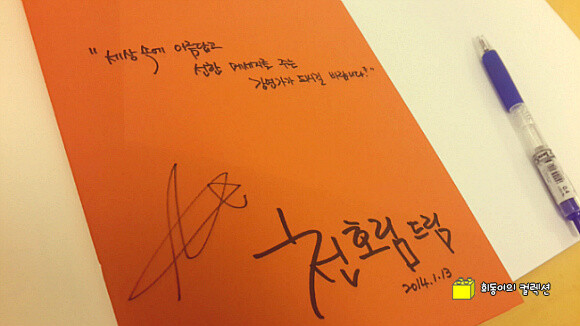 "세상 속에 아름답고
선한 메세지를 주는
경영가가 되시길 바랍니다!"
호림 드림
2014.1.13
회동이의 컬렉션